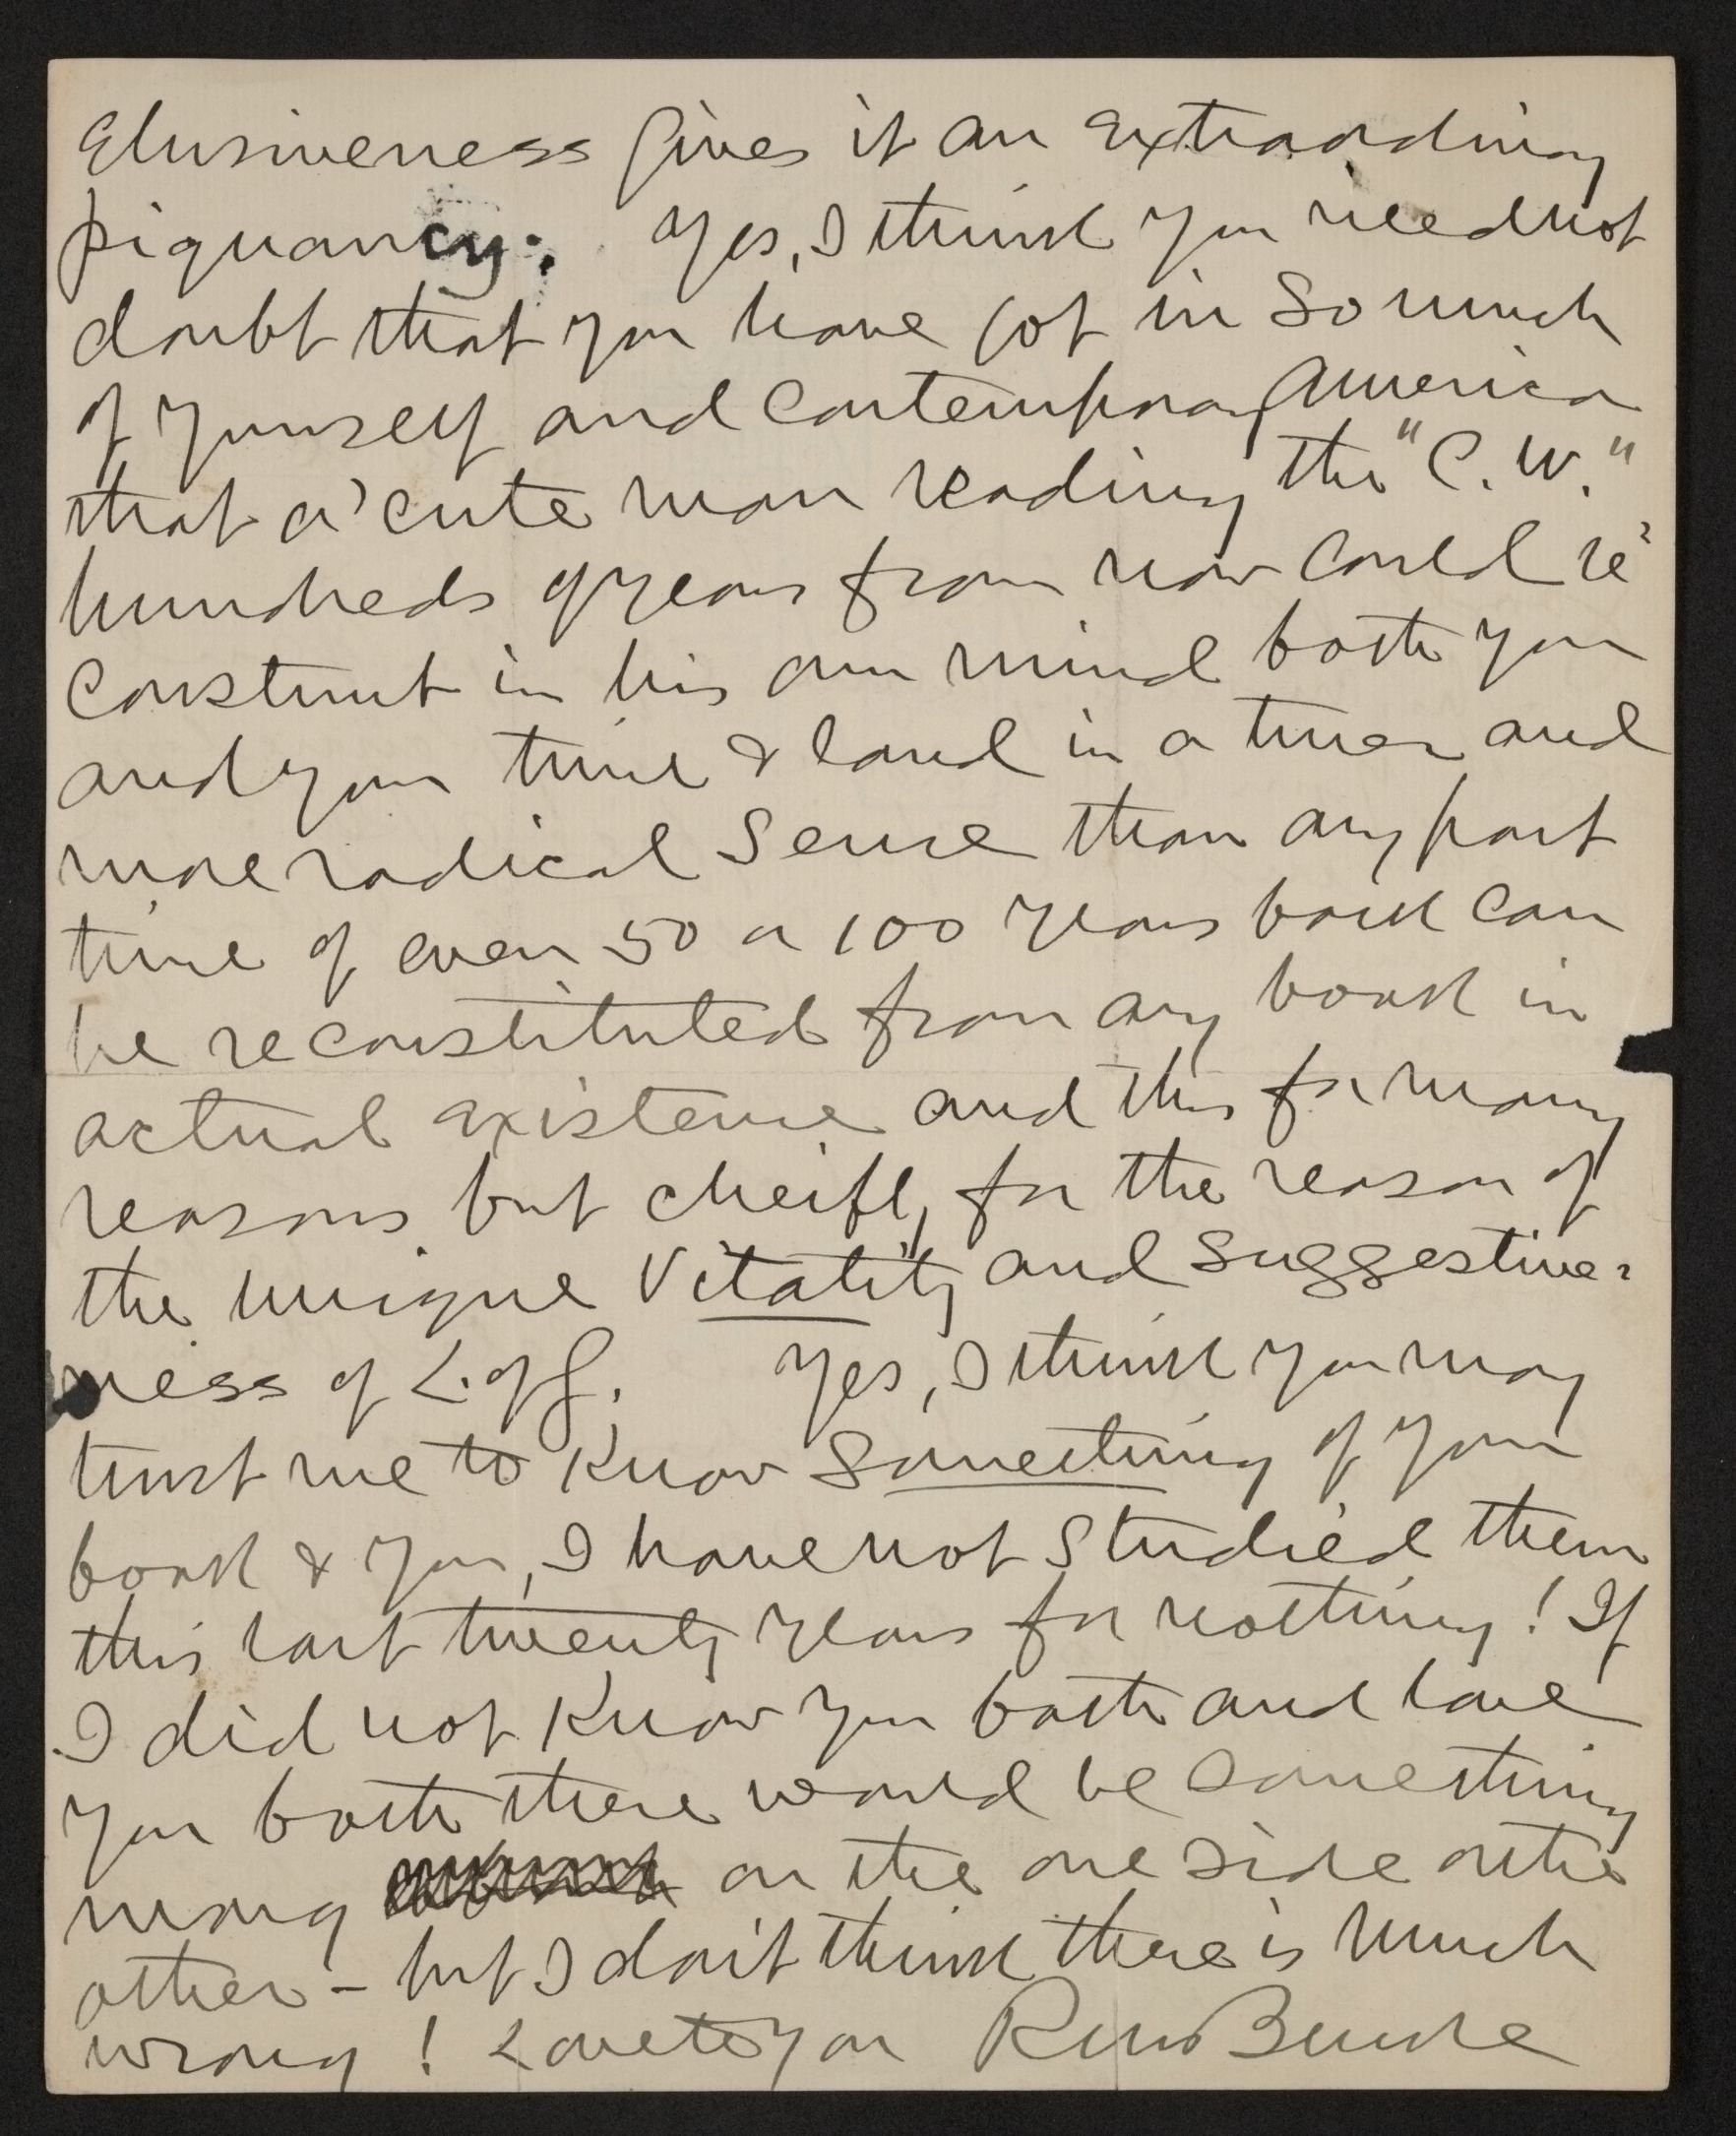 Elusiveness gives it an extraordinary
piquancy. Yes, I think you need not
doubt that you have got in so much
of yourself and contemporary America
that a 'cute man reading the "C.W."
hundreds of years from now could re-
construct in his own mind both you
and your time & land in a truer and
more radical sense than any past
time of even 50 or 100 years back can
be reconstituted from any book in
actual existence and this for many
reasons but cheifly for the reason of
the unique vitality and suggestive-
ness of L. of G. Yes, I think you may
trust me to know something of your
book & you, I have not studied them
this last twenty years for nothing! If
I did not know you both and love
you both there would be something
wrong on the one side or the
other – but I don't think there is much
wrong! Love to you RM Bucke